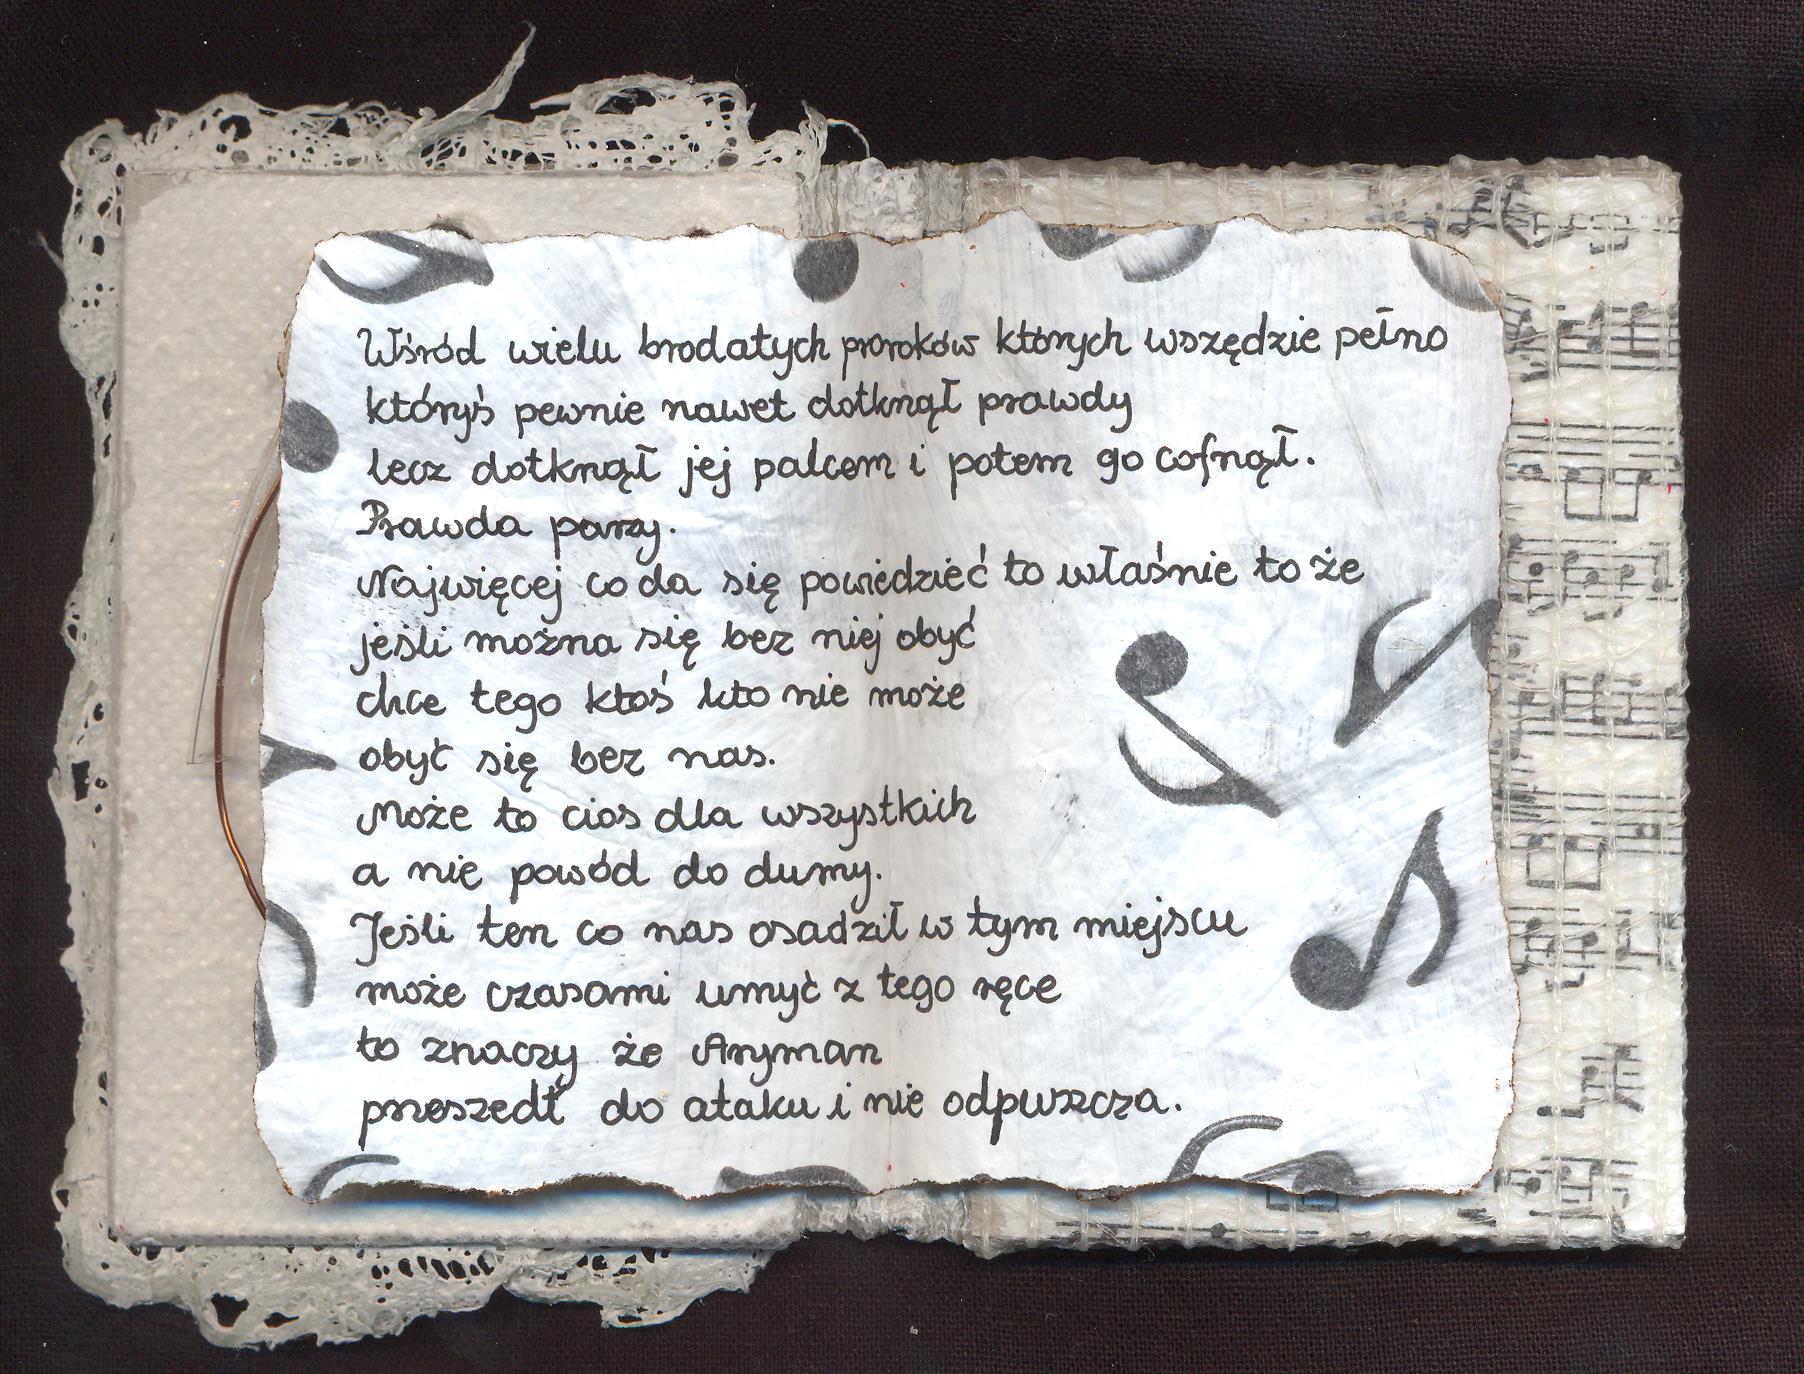 Wśród wielu brodatych proroków których wszędzie pełno
któryś pewnie nawet dotknął prawdy
lecz dotknął jej palcem i potem go cofnął.
Prawda parzy.
Najwięcej co da się powiedzieć to właśnie to że
jeśli można się bez niej obyć
chce tego ktoś kto nie może
obyć się bez nas.
Może to cios dla wszystkich
a nie powód do dumy.
Jeśli ten co nas osadził w tym miejscu
może czasami umyć z tego ręce
to znaczy że Aryman
przeszedł do ataku i nie odpuszcza.